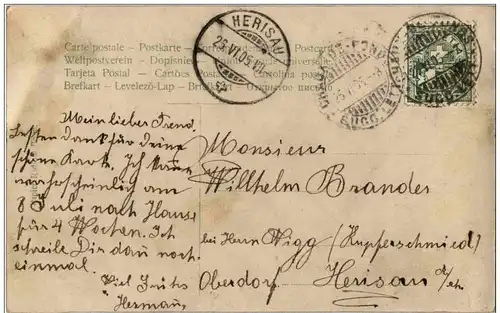 Carte postale – Postkarte –
Weltpostverein – Dopisnice
Tarjeta Postal – Cartões Postaes
Brefkort – Levelező-Lap – Briefkart –
HERISAU
26.VI.05.VII
Mein lieber Freund.
Besten dank für deine
schöne Karte. Ich kann
wahrscheinlich am
8 Juli nach Hause
für 4 Wochen. Ich
schreibe Dir dan noch
einmal.
Viel Grüße
Hermann
Monsieur
Wilhelm Brandes
bei Herrn Wigg (Kupferschmied)
Oberdorf. Herisau